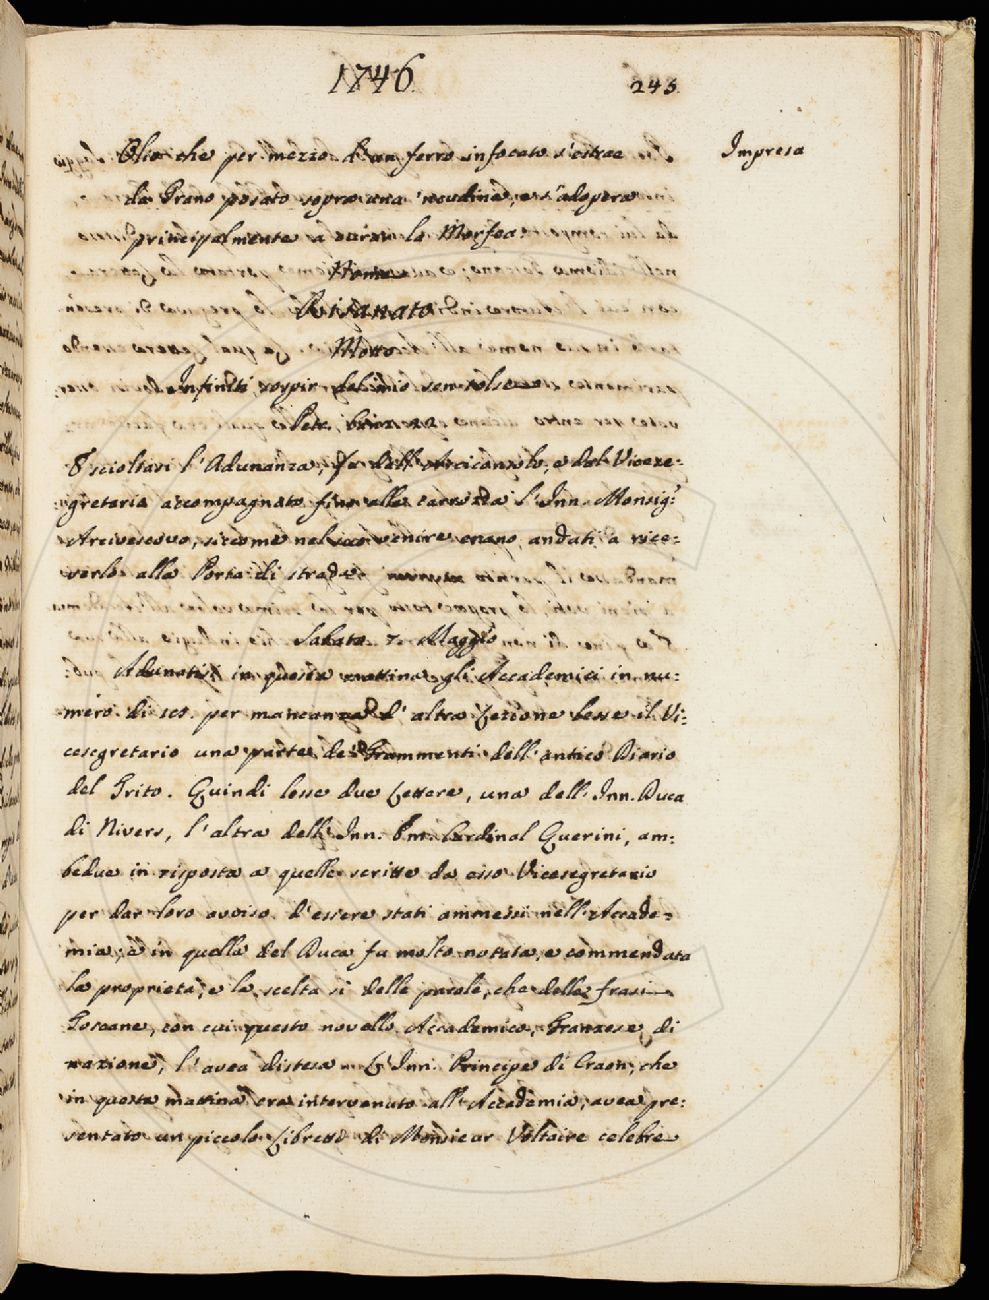 1746.
243.
Impresa
Olio che per mezzo d'un ferro infocato s'estrae
da Grano posato sopra una 'ncudine, e s'adopera
principalmente a curar la Morfea
Nome
Risanato
Motto
Infiniti sospir del mio sen tolse
Petr.
E scioltasi l'Adunanza, fu dall'Arciconsolo, e dal Vicese-
gretario accompagnato fino alla carrozza l'Inn. Monsig.r
Arcivescovo, siccome nel suo venire erano andati a rice-
verlo alla Porta di strada
Sabato 7. Maggio
Adunatisi in questa mattina gli Accademici in nu-
mero di sco. per mancanza d'altra Lezione lesse il Vi-
cesegretario una parte de' Frammenti dell'antico Diario
del Trito. Quindi lesse due Lettere, una dell'Inn. Duca
di Nivers, l'altra dell'Inn. Em. Cardinal Querini, am-
bedue in risposta a quelle scritte da esso Vicesegretario
per dar loro avviso d'essere stati ammessi nell'Accade-
mia; e in quella del Duca fu molto notata, e commendata
la proprietà, e la scelta sì delle parole, che delle frasi
Toscane, con cui questo novello Accademico, Franzese di
nazione, l'avea distesa. L'Inn. Principe di Craon, che
in questa mattina era intervenuto all'Accademia, avea pre-
sentato un piccolo Libretto di Monsieur Voltaire celebre